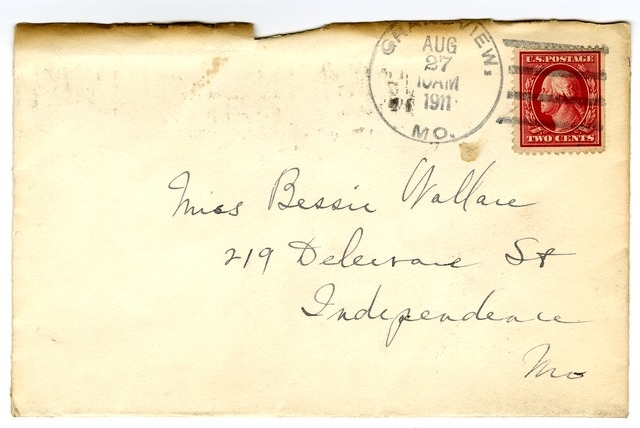 GRANDVIEW,
AUG
27
10AM
1911
MO.
U.S. POSTAGE
TWO CENTS
Miss Bessie Wallace
219 Deleware St
Independence
Mo